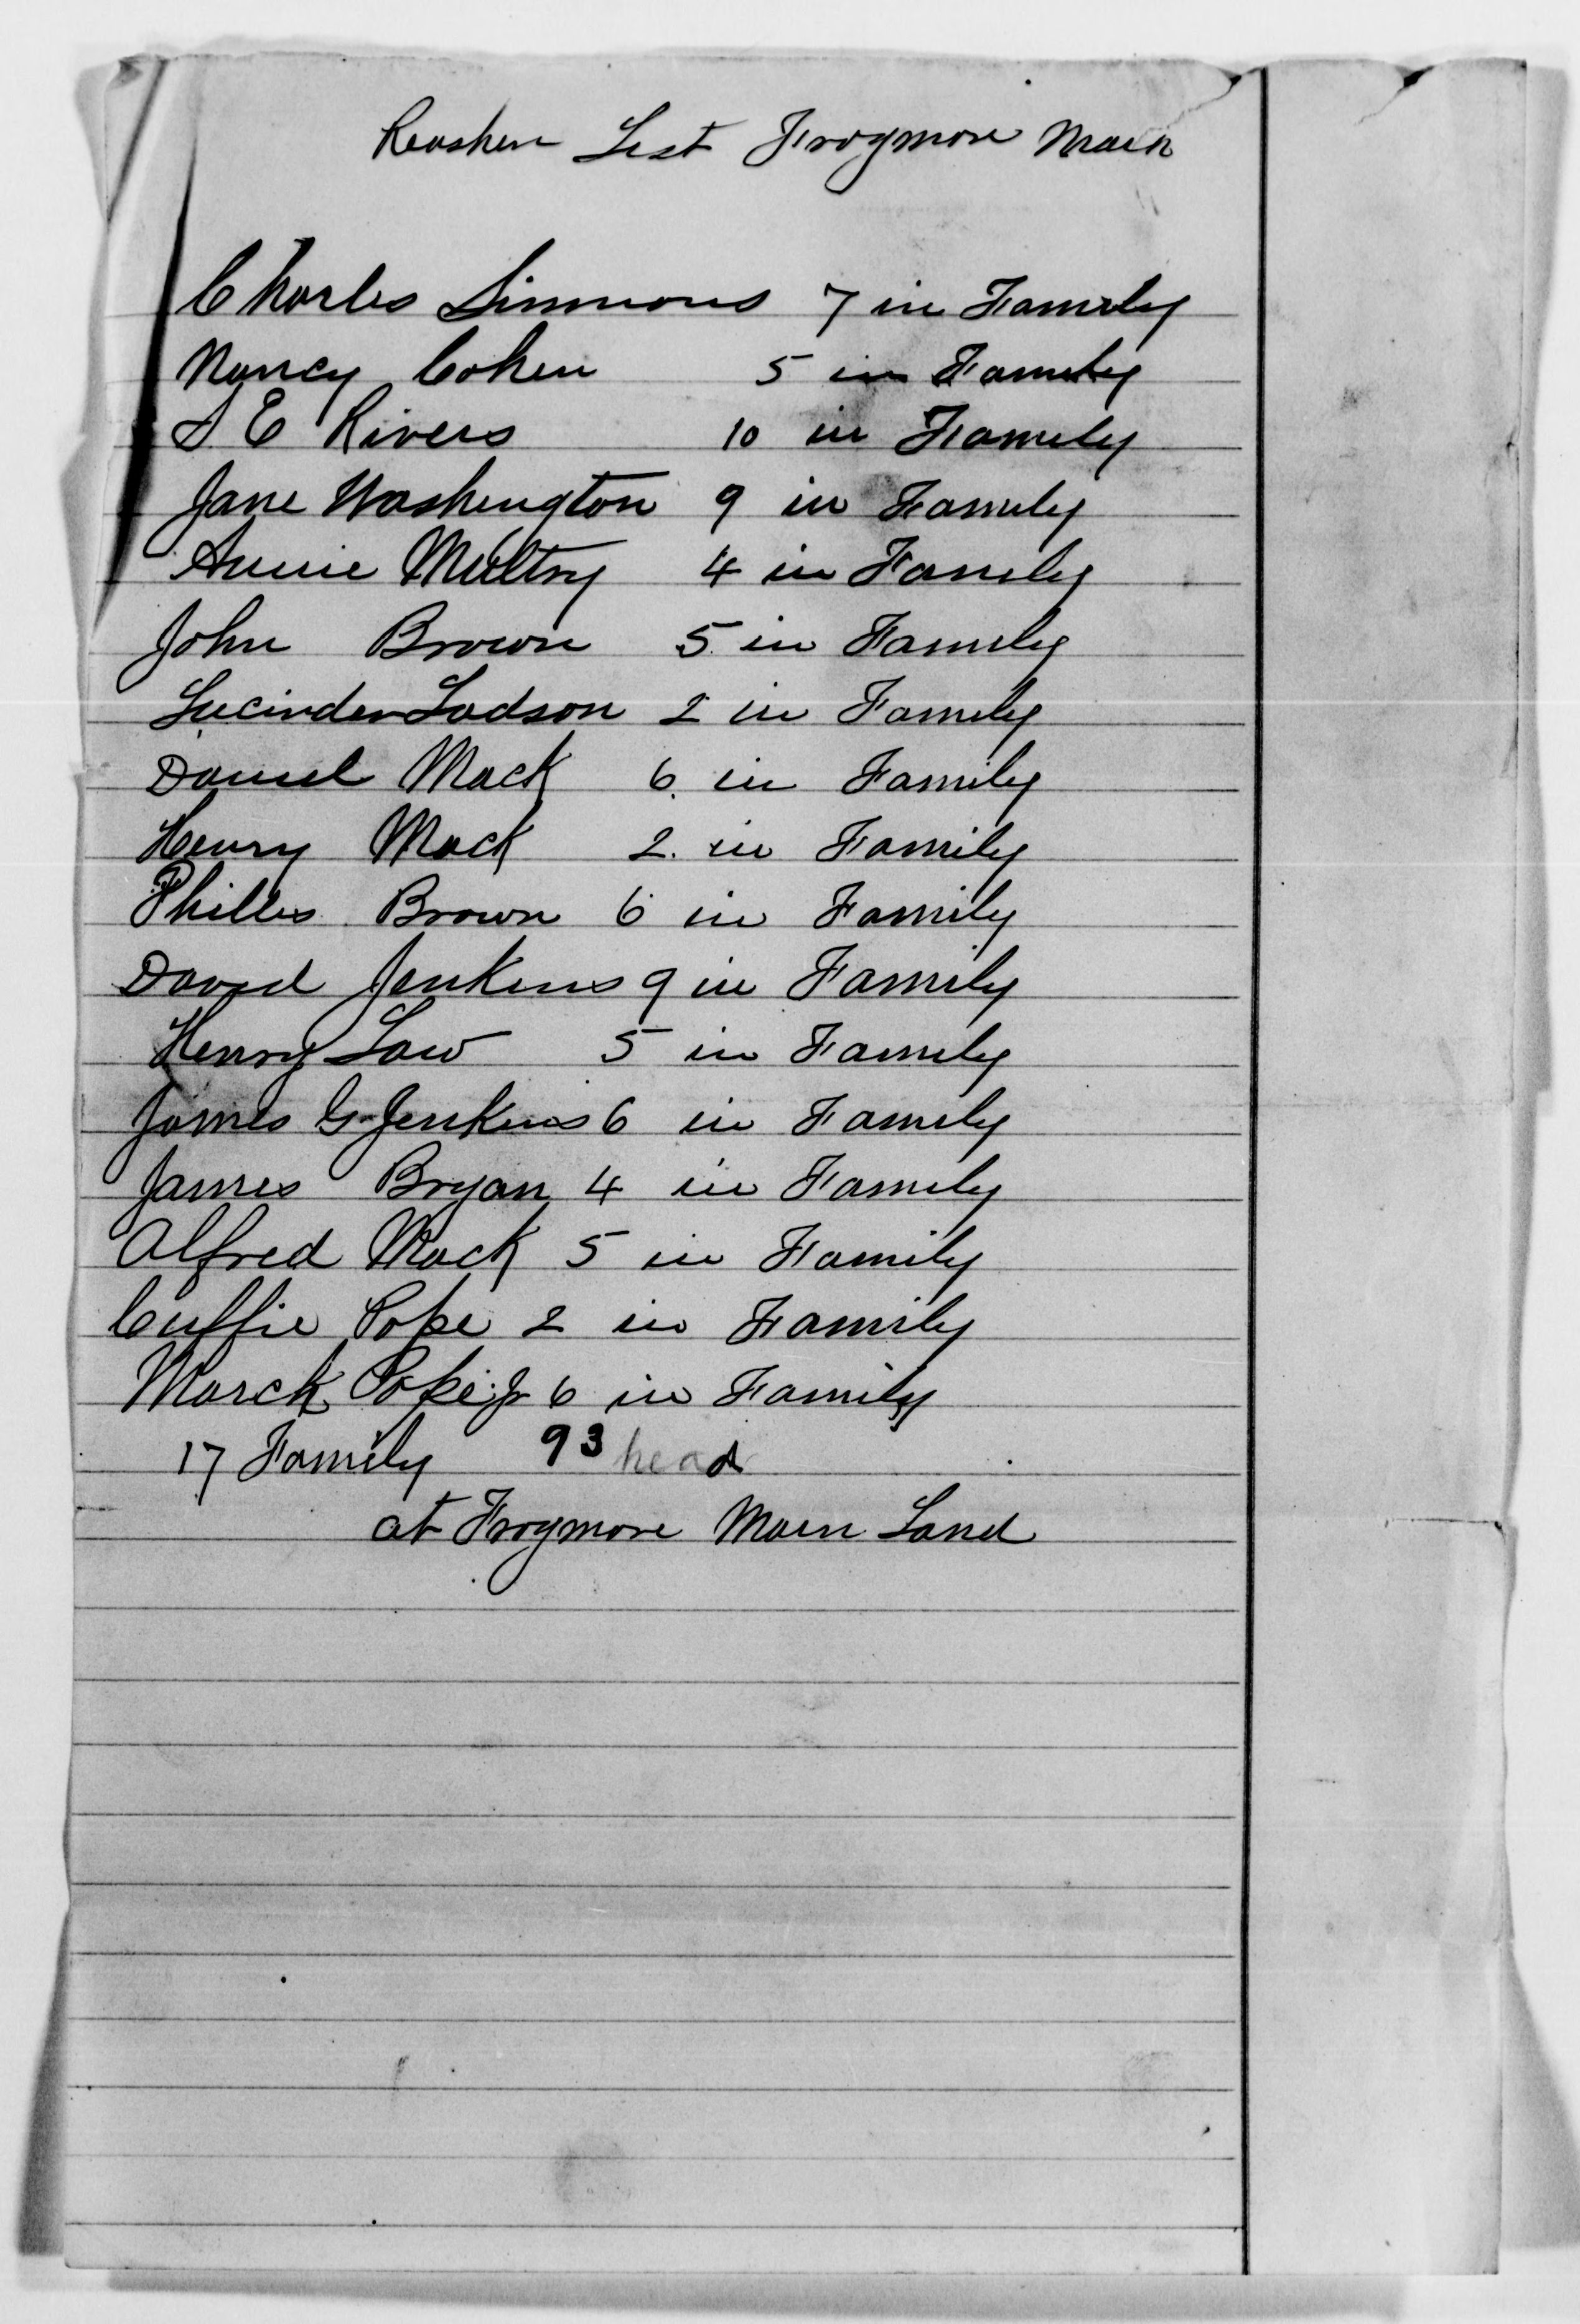 Reashen List Frogmore Main
Charles Simmons 7 in Family
Nancy Cohen 5 in Family
S E Rivers 10 in Family
Jane Washington 9 in Family
Annie Multry 4 in Family
John Brown 5 in Family
Lucinder Ladson 2 in Family
Daniel Mack 6 in Family
Henry Mack 2 in Family
Philles Brown 6 in Family
David Jenkins 9 in Family
Henry Law 5 in Family
James G Jenkins 6 in Family
James Bryan 4 in Family
Alfred Mack 5 in Family
Cuffie Pope 2 in Family
March Pope Jr 6 in Family
17 Family 93 head
at Frogmore Main Land